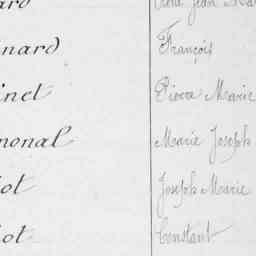 ard René Jean Mar
nard François
inel Pierre Marie
monal Marie Joseph
ot Joseph Marie
ot Constant